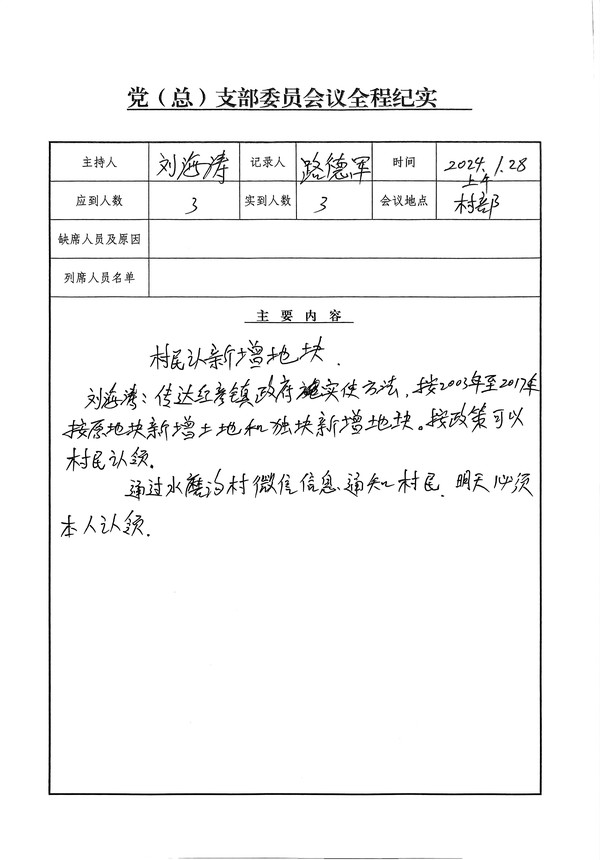 党（总）支部委员会议全程纪实
主持人 刘海涛 记录人 路德军 时间 2024.1.28 上午
应到人数 3 实到人数 3 会议地点 村部
缺席人员及原因
列席人员名单
主要内容
村民认新增地块.
刘海涛：传达红彦镇政府确实使方法，按2003年至2017年
按原地块新增土地和独块新增地块。按政策可以
村民认领.
通过水磨沟村微信信息通知村民.明天必须
本人认领.